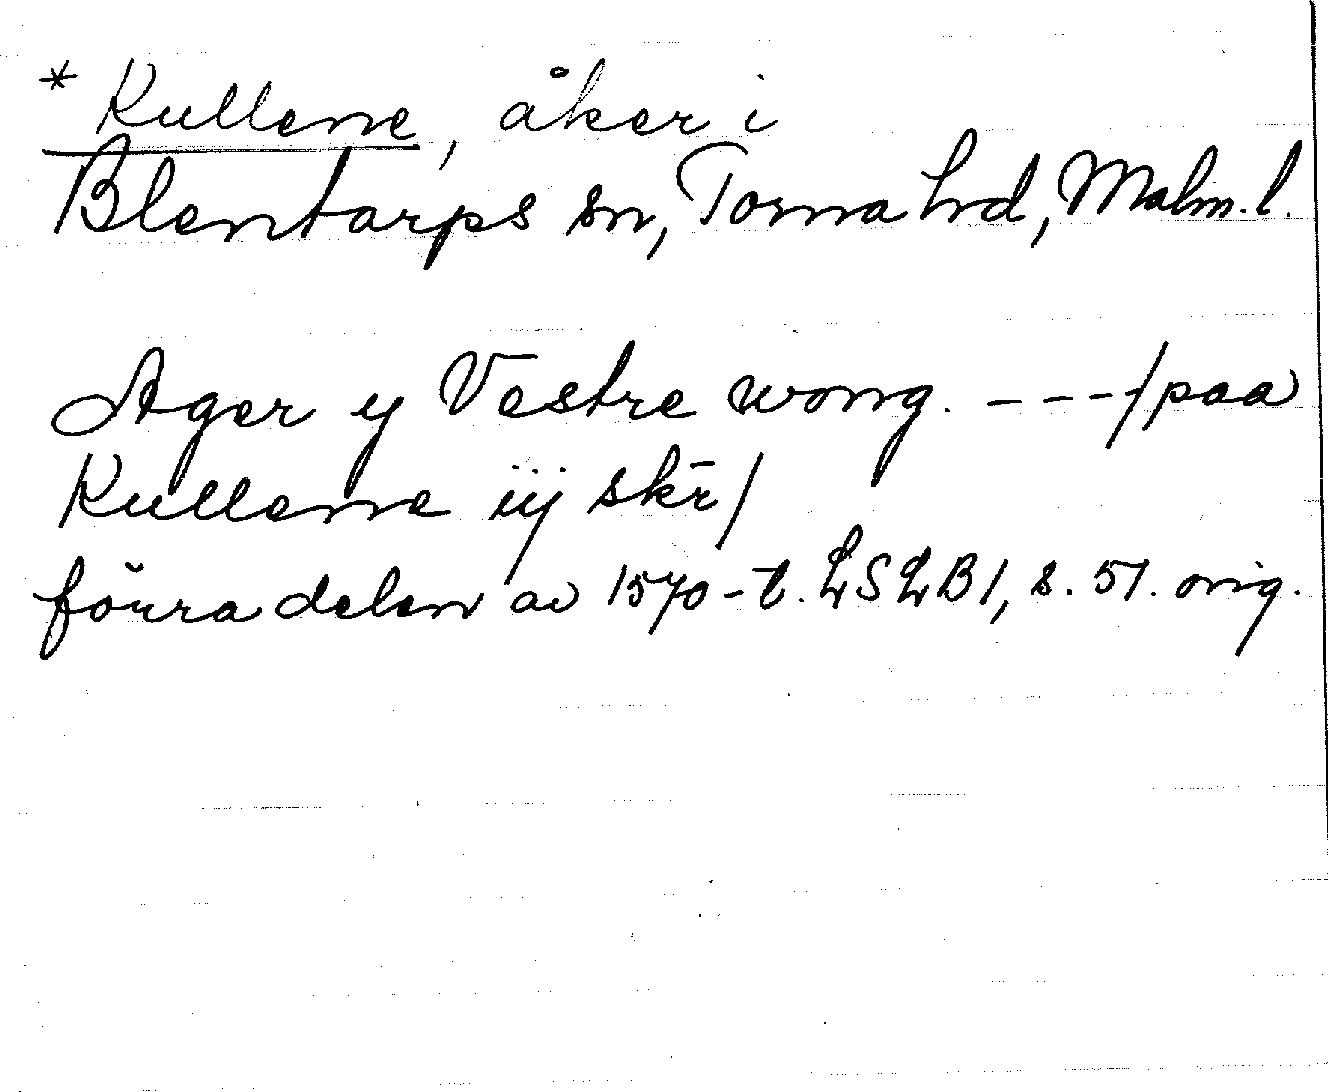 * Kullene, åker i
Blentarps sn, Torna hrd, Malm. l.
Ager ÿ Vestre wong. ---/paa
Kullene iij skr̄/
förra delen av 1570-t. LSLB1, s. 51. orig.